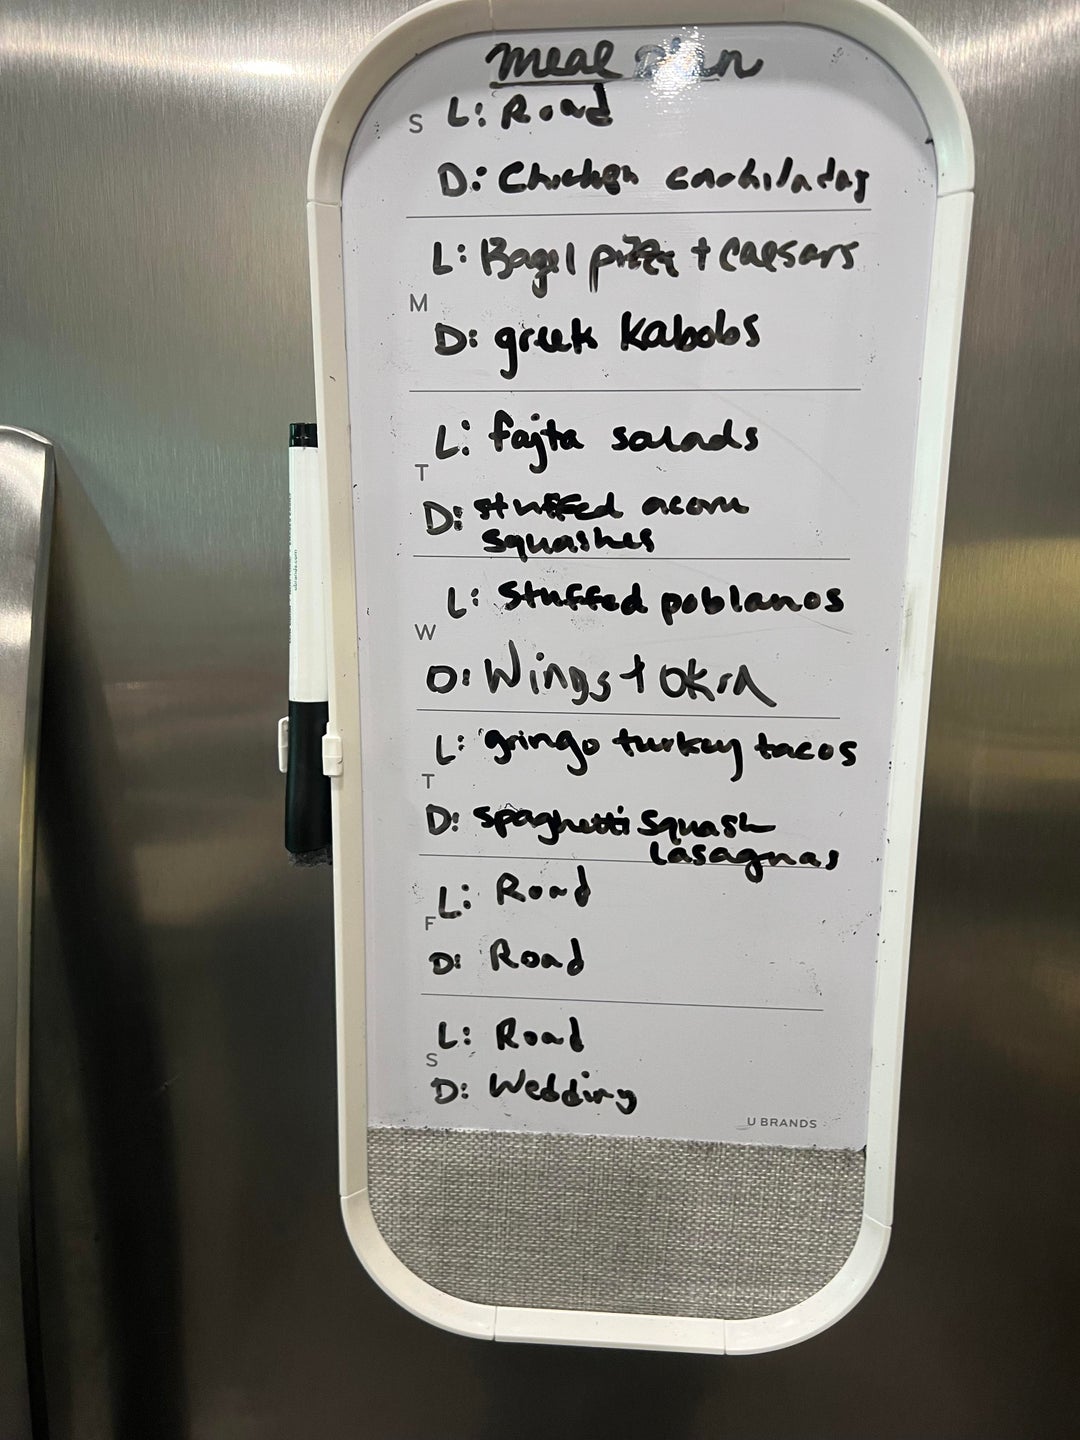 meal plan
S
L: Road
D: Chicken enchiladas
L: Bagel pizza + Caesars
M
D: greek Kabobs
L: fajta salads
T
D: stuffed acorn
squashes
L: Stuffed poblanos
W
D: Wings + OKRA
L: gringo turkey tacos
T
D: spaghetti squash
lasagnas
L: Road
F
D: Road
L: Road
S
D: Wedding
U BRANDS